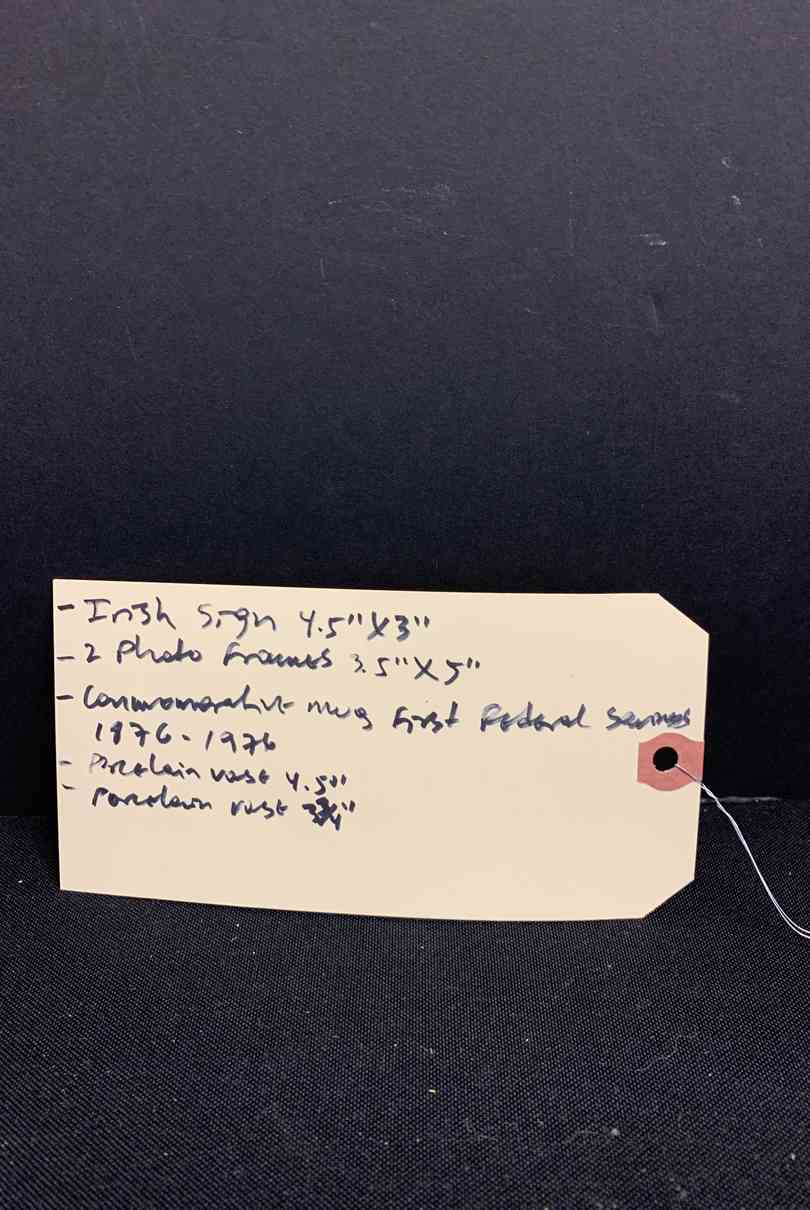 - Irish Sign 4.5"X3"
- 2 Photo Frames 3.5"X5"
- Commomorative mug First Federal Savings
1976-1976
- Porcelain vase 4.5"
- Porcelain vase